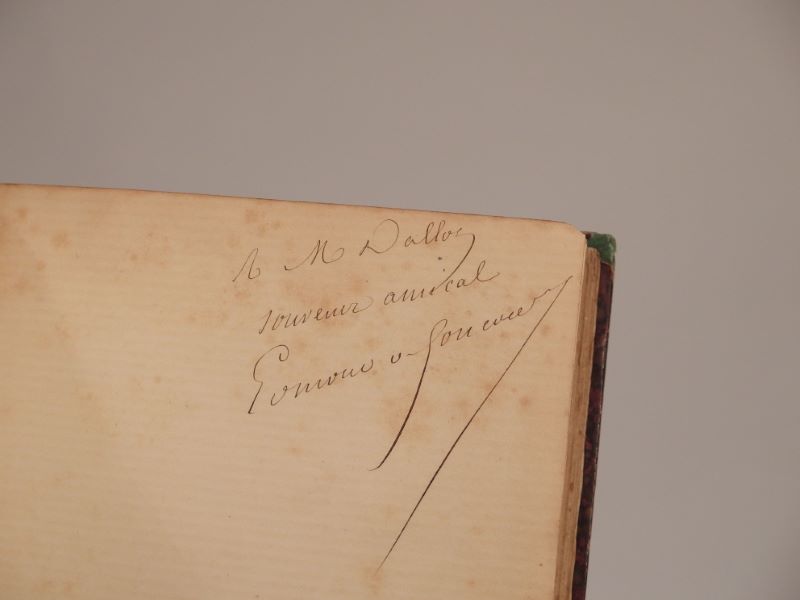 A M Dalloz
souvenir amical
Edmond de Goncourt